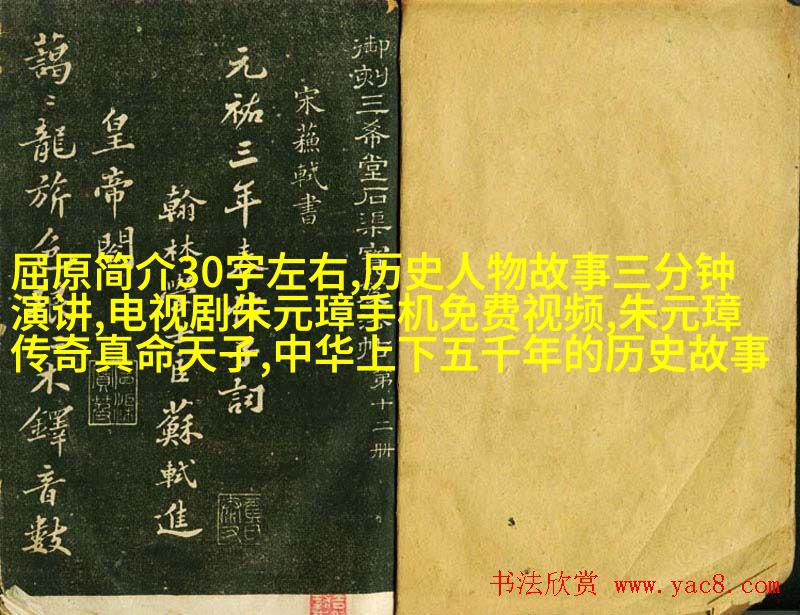 御刻三希堂石渠寶笈法帖第十二册
宋蘇軾書
元祐三年春帖子詞
翰林學士臣蘇軾進
皇帝閣
藹〻龍旂色琅〻木鐸音數
屈原简介30字左右,历史人物故事三分钟
演讲,电视剧朱元璋手机免费视频,朱元璋
传奇真命天子,中华上下五千年的历史故事
书法欣赏 www.yac8.com